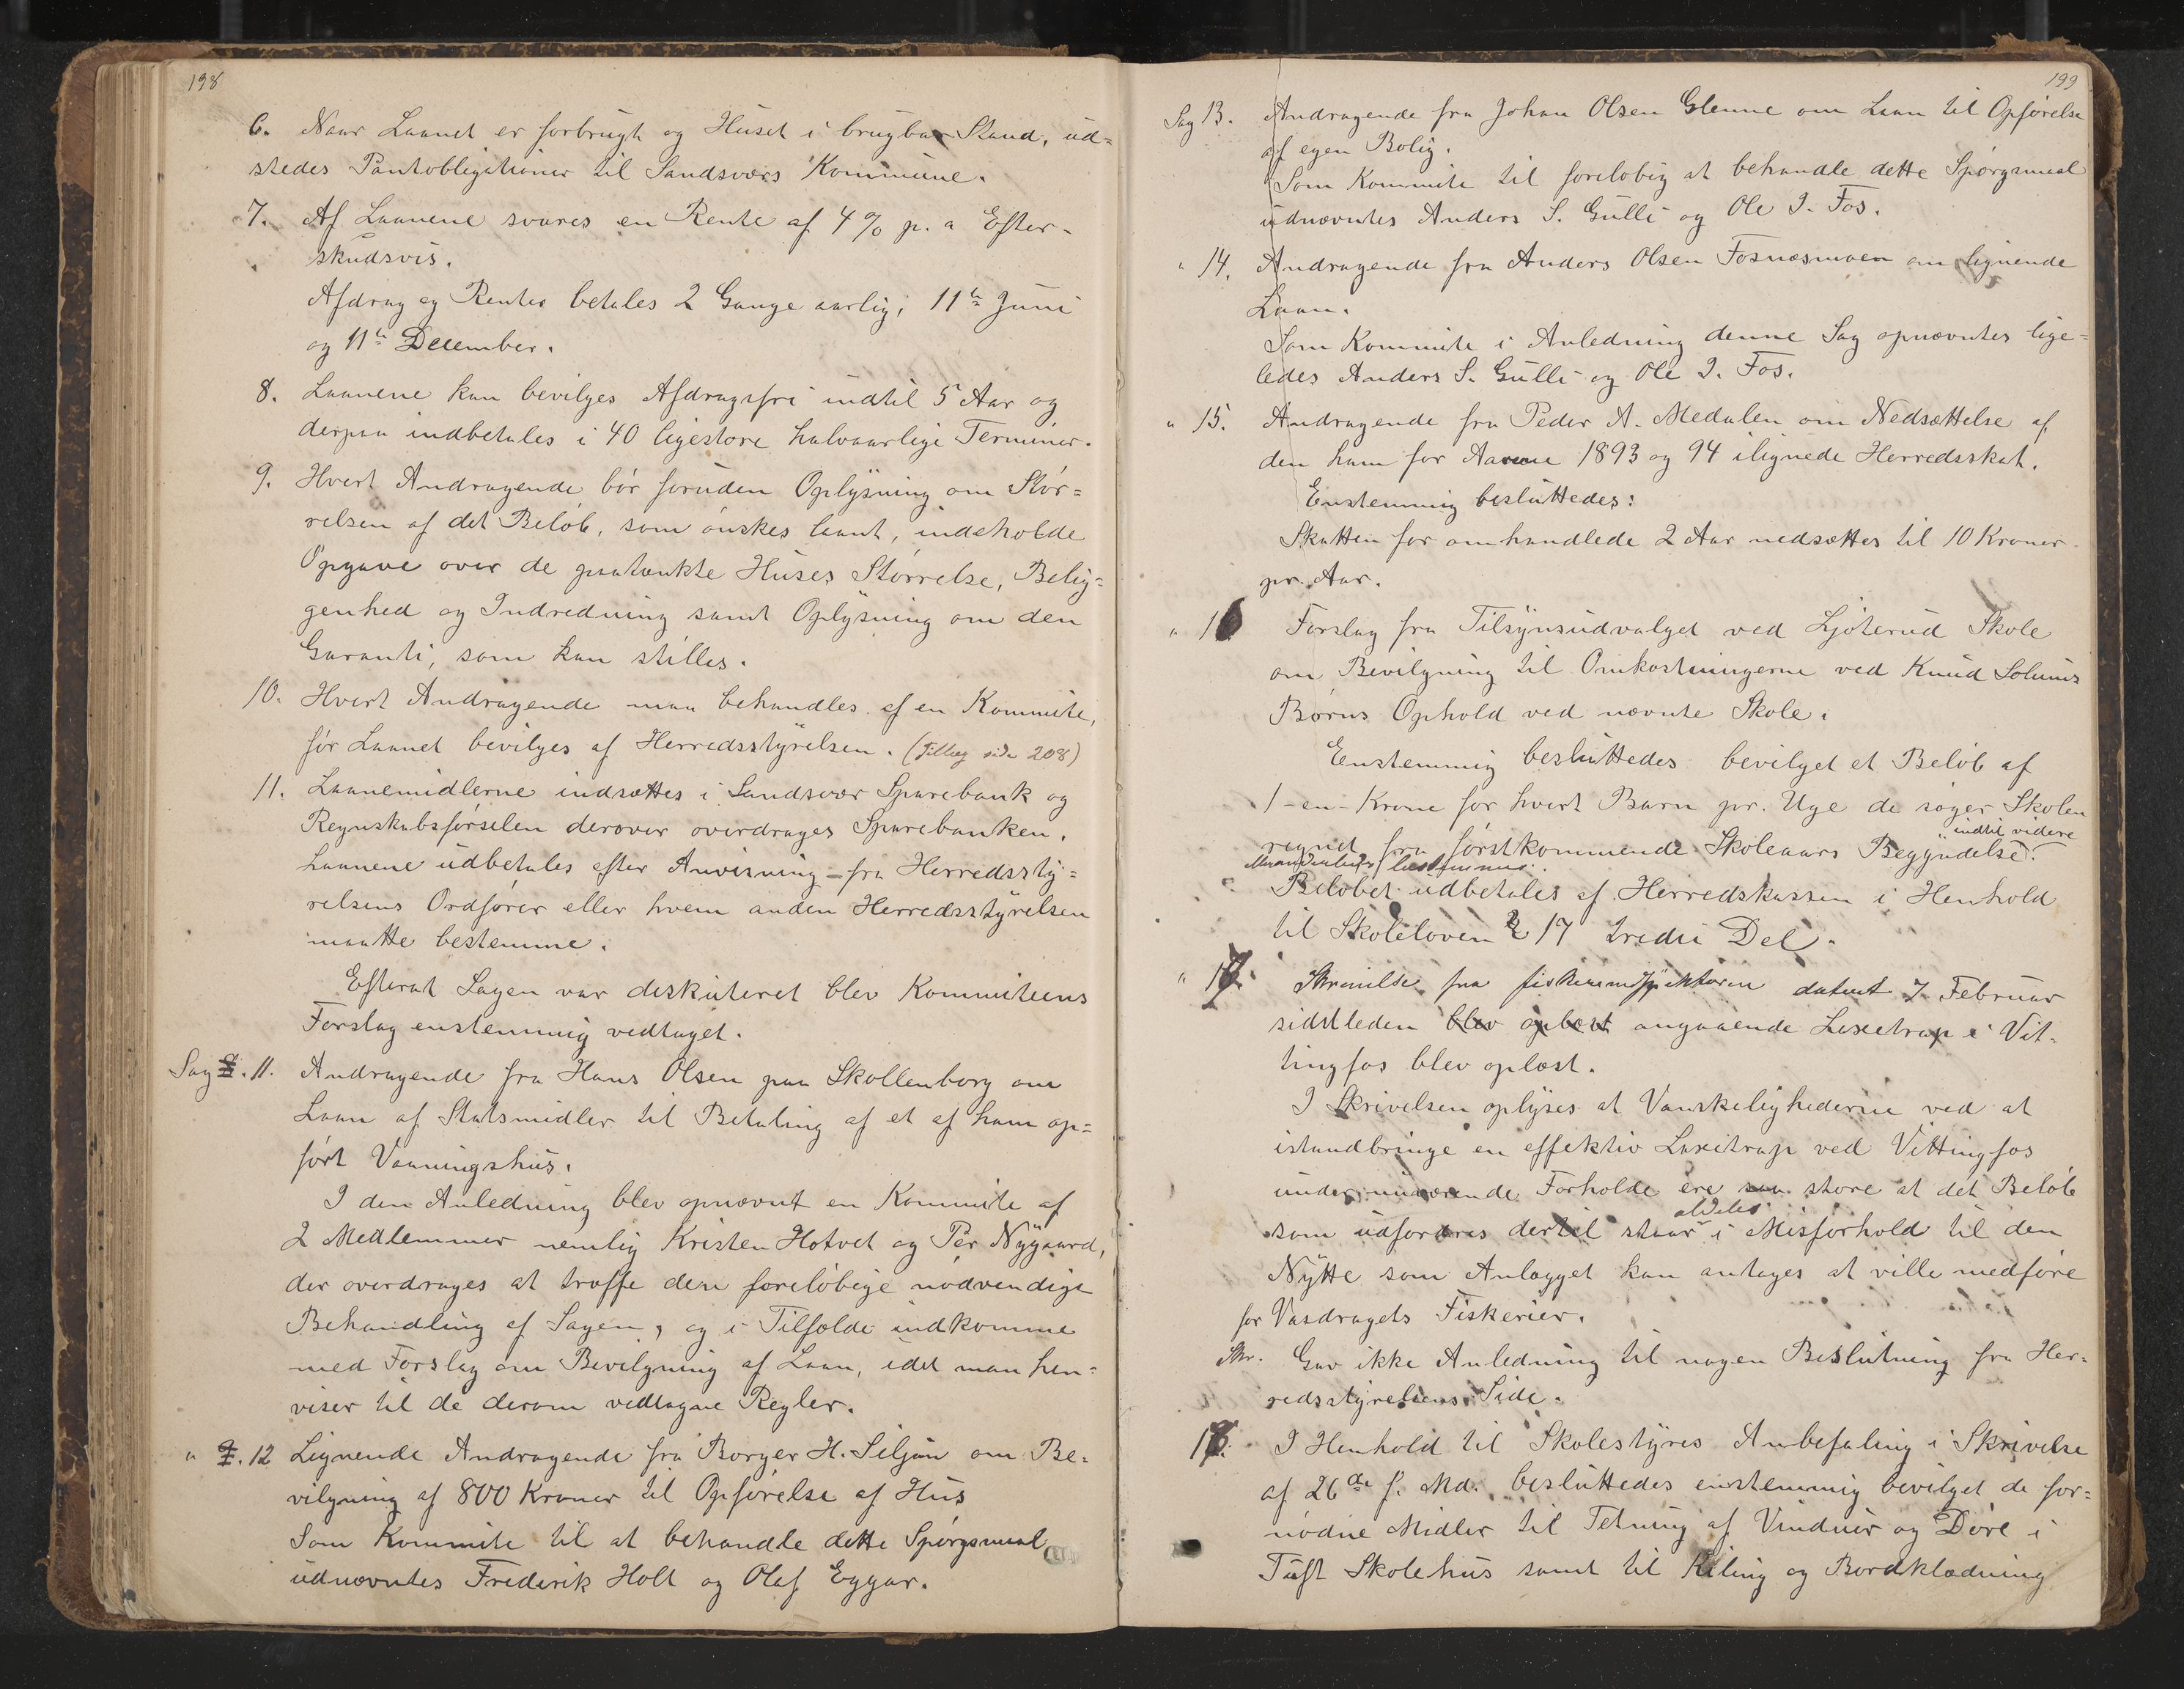 198
6. Naar Laanet er forbrugt og Huset i brugbar Stand, ud=
stedes Pantobligationer til Sandsværs Kommune.
7. Af Laanene svares en Rente af 4 % p. a Efter-
skudsvis.
Afdrag og Renter betales 2 Gange aarlig, 11te Juni
og 11te December.
8. Laanene kan bevilges Afdragsfri indtil 5 Aar og
derpaa indbetales i 40 ligestore halvaarlige Terminer.
9. Hvert Andragende bør foruden Oplysning om Stør=
relsen af det Beløb, som ønskes laant, indeholde
Opgave over de paatænkte Huses Størrelse, Belig=
genhed og Indredning samt Oplysning om den
Garanti, som kan stilles.
10. Hvert Andragende maa behandles af en Kommite,
før Laanet bevilges af Herredsstyrelsen. (Tillæg side 208)
11. Laanemidlerne indsættes i Sandsvær Sparebank og
Regnskabsførselen derover overdrages Sparebanken.
Laanene udbetales efter Anvisning fra Herredssty=
relsens Ordfører eller hvem anden Herredsstyrelsen
maatte bestemme.
Efterat Sagen var diskuteret blev Kommiteens
Forslag enstemmig vedtaget.
Sag 11. Andragende fra Hans Olsen paa Skollenborg om
Laan af Statsmidler til Betaling af et af ham op=
ført Vaaningshus.
I den Anledning blev opnævnt en Kommite af
2 Medlemmer nemlig Kristen Hotvet og Per Nygaard,
der overdrages at træffe den foreløbige nødvendige
Behandling af Sagen, og i Tilfælde indkomme
med Forslag om Bevilgning af Laan, idet man hen=
viser til de derom vedtagne Regler.
" 12 Lignende Andragende fra Borger H. Seljan om Be=
vilgning af 800 Kroner til Opførelse af Hus
Som Kommite til at behandle dette Spørgsmaal
udnævntes Frederik Holt og Olaf Eggar.
199
Sag 13. Andragende fra Johan Olsen Glenne om Laan til Opførelse
af egen Bolig.
Som Kommite til foreløbig at behandle dette Spørgsmaal
udnævntes Anders S. Gulli og Ole I. Fos.
" 14. Andragende fra Anders Olsen Fosnæsmoen om lignende
Laan.
Som Kommite i Anledning denne Sag opnævntes lige=
ledes Anders S. Gulli og Ole I. Fos.
" 15. Andragende fra Peder A. Medalen om Nedsættelse af
den ham for Aarene 1893 og 94 ilignede Herredsskat.
Enstemmig besluttedes:
Skatten for omhandlede 2 Aar nedsættes til 10 Kroner
pr. Aar.
" 16 Forslag fra Tilsynsudvalget ved Ljøterud Skole
om Bevilgning til Omkostningerne ved Knud Solums
Børns Ophold ved nævnte Skole.
Eenstemmig besluttedes bevilget et Beløb af
1 - en - Krone for hvert Barn pr. Uge de søger Skolen
indtil videre
regnet fra førstkommende Skoleaars Begyndelse.
Beløbet udbetales af Herredskassen i Henhold
til Skoleloven § 17 tredie Del.
" 17. Skrivelse fra fiskeriinspektøren datert 7 Februar
sidstleden blev oplæst angaaende Laxetrap i Vit-
tingfos blev oplæst.
I Skrivelsen oplyses at Vanskelighederne ved at
istandbringe en effektiv Laxetrap ved Vittingfos
under nuværende Forholde ere saa store at det Beløb
aldeles
som udfordres dertil staar i Misforhold til den
Nytte som Anlægget kan antages at ville medføre
for Vasdragets Fiskerier.
Skr. Gav ikke Anledning til nogen Beslutning fra Her=
redsstyrelsens Side.
18. I Henhold til Skolestyres Anbefaling i Skrivelse
af 26de f. Md. besluttedes enstemmig bevilget de for=
nødne Midler til Tetning af Vinduer og Døre i
Tuft Skolehus samt til Kiling og Bordklædning